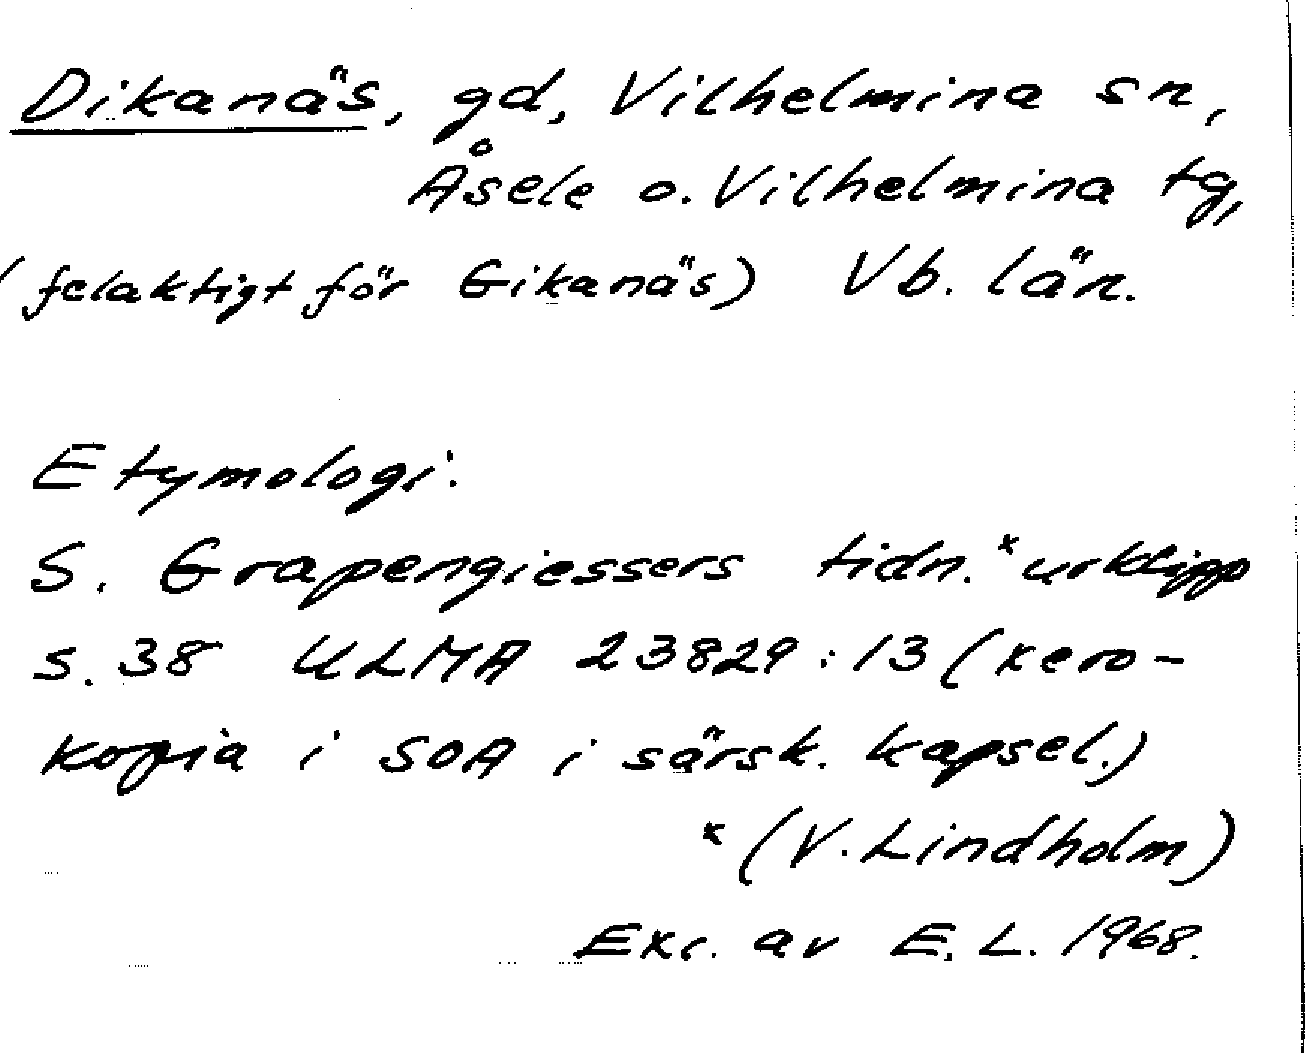 Dikanäs, gd, Vilhelmina sn,
Åsele o. Vilhelmina tg,
(felaktigt för Gikanäs) Vb. län.
Etymologi.
S. Grapengiessers tidn.x urklipp
s. 38 ULMA 23829:13 (xero-
kopia i SOA i särsk. kapsel.)
x (V. Lindholm)
Exc. av E.L. 1968.